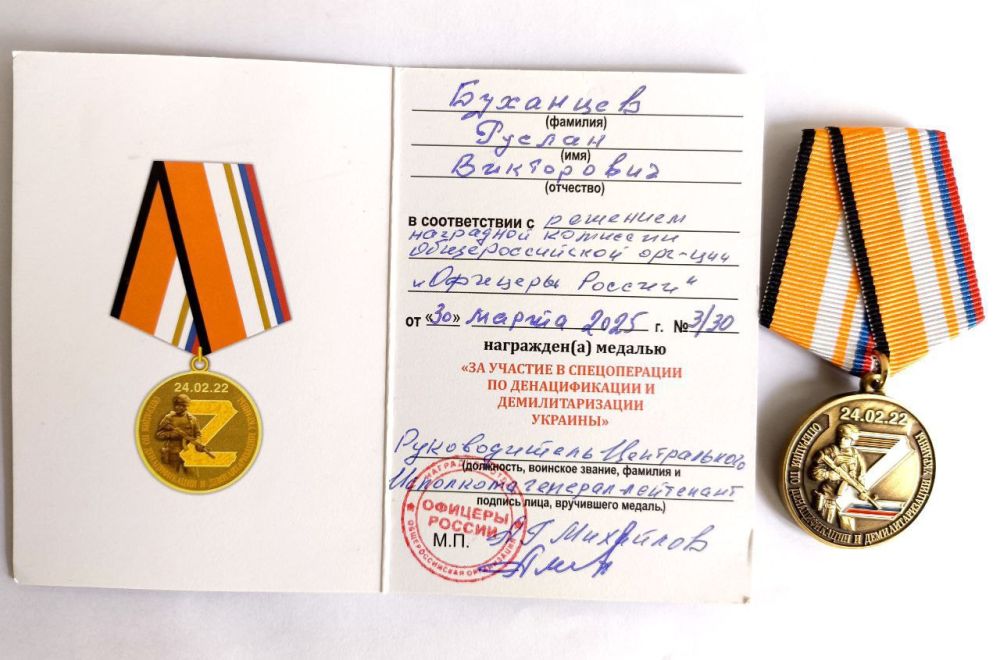 24.02.22
Z
Буханцев
(фамилия)
Руслан
(имя)
Викторович
(отчество)
в соответствии с решением
наградной комиссии
Общероссийской орг-ции
„Офицеры России“
от «30» марта 2025 г. № 3/30
награжден(а) медалью
«ЗА УЧАСТИЕ В СПЕЦОПЕРАЦИИ
ПО ДЕНАЦИФИКАЦИИ И
ДЕМИЛИТАРИЗАЦИИ
УКРАИНЫ»
Руководитель Центрального
(должность, воинское звание, фамилия и
Исполкома генерал-лейтенант
подпись лица, вручившего медаль.)
ОФИЦЕРЫ
РОССИИ
ОБЩЕРОССИЙСКАЯ ОРГАНИЗАЦИЯ
М.П.
А Г Михайлов
24.02.22
Z
ОПЕРАЦИЯ ПО ДЕНАЦИФИКАЦИИ И ДЕМИЛИТАРИЗАЦИИ УКРАИНЫ